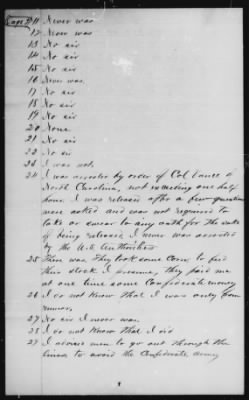 Page 3 11 Never was
12 Never was
13 No sir
14 No sir
15 No sir
16 Never was,
17 No sir
18 No sir
19 No sir
20 None
21 No sir
22 No sir
23 I was not,
24 I was arrested by order of Col Vance of
North Carolina, not exceeding one half
hour. I was released after a few questions
were asked and was not required to
take or swear to any oath for the sake
of being released, I never was arrested
by the U.S. Authorities
25 There was They took some Corn to feed
their stock I presume, they paid me
at one time some Confederate money
26 I do not know that I was only from
rumor,
27 No sir I never was
28 I do not know that I did
29 I advised men to go out through the
lines to avoid the Confederate Army